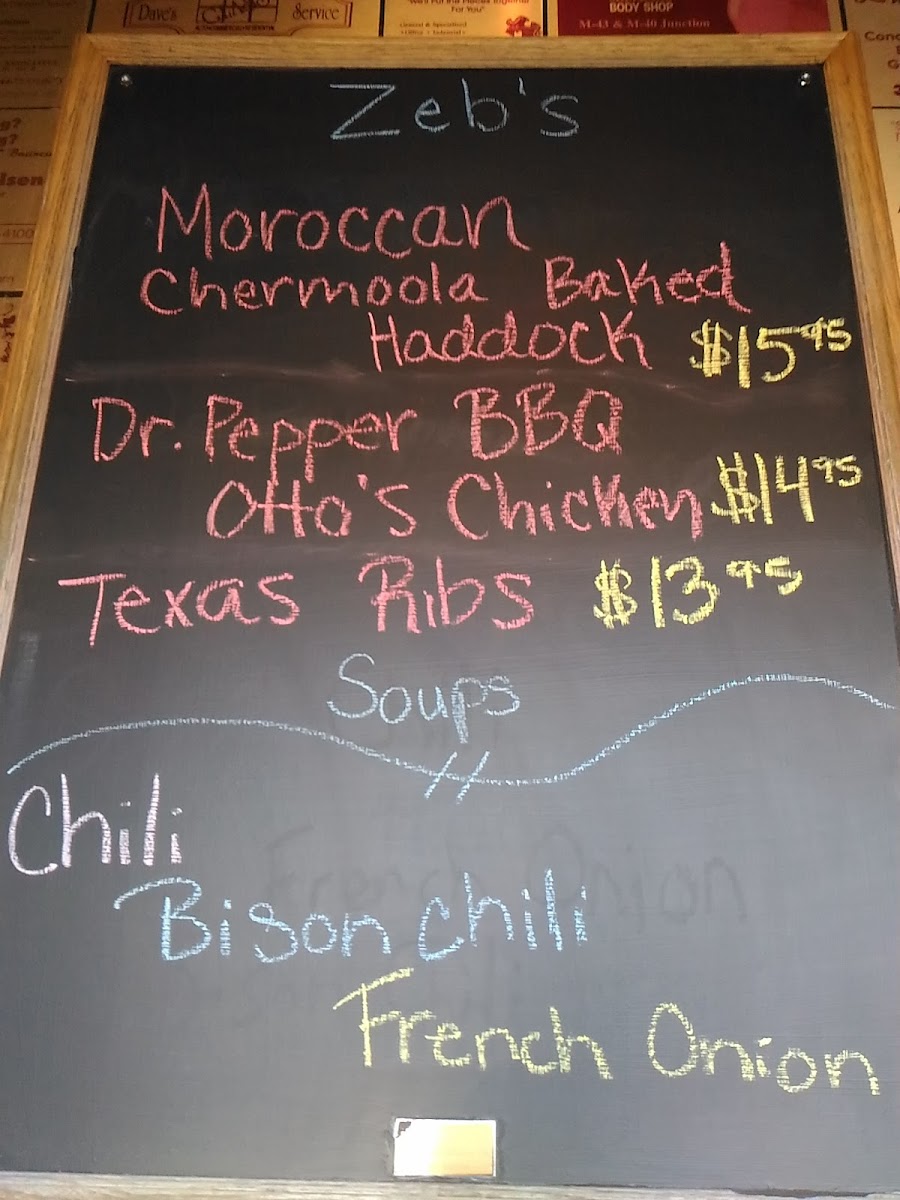 Dave's
Service
For You"
BODY SHOP
M-43 & M-40 Junction
Zeb's
Moroccan
Chermoola Baked
Haddock $15.95
Dr. Pepper BBQ
Otto's Chicken $14.95
Texas Ribs $13.95
Soups
Chili
Bison chili
French Onion